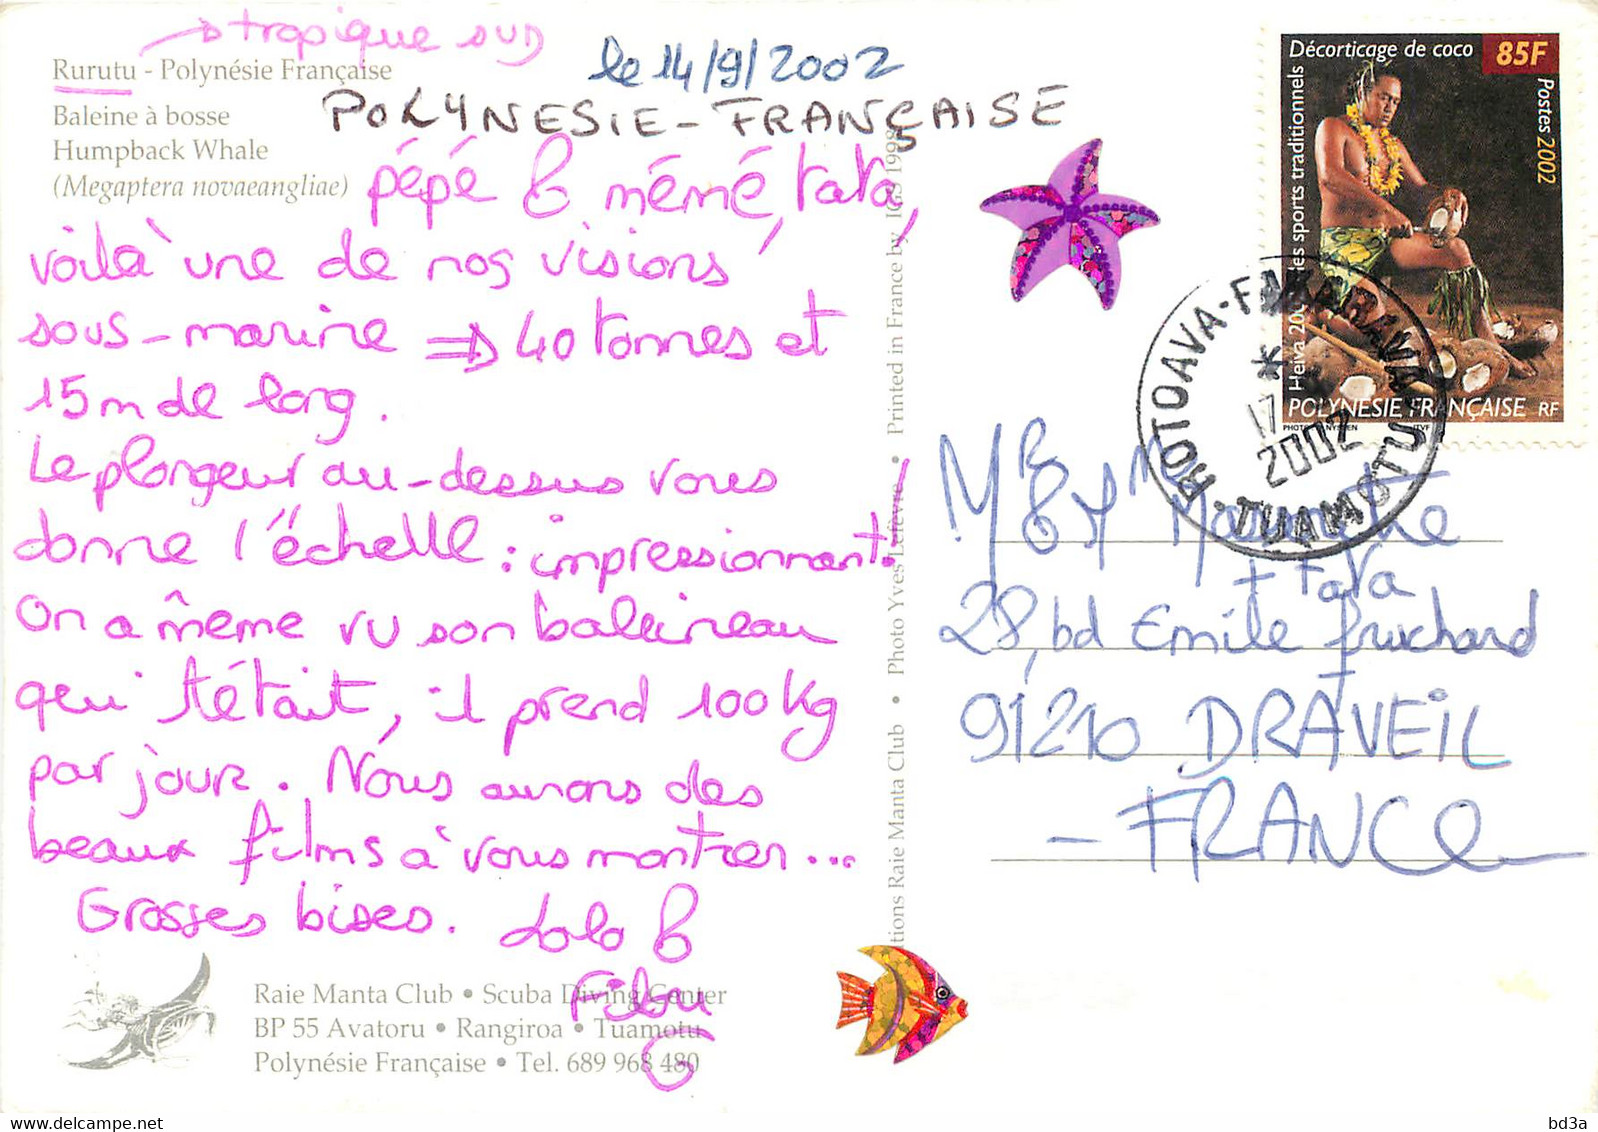 → tropique SUD
Rurutu - Polynésie Française
le 14/9/2002
POLYNESIE-FRANÇAISE
Baleine à bosse
Humpback Whale
(Megaptera novaeangliae)
pépé & mémé, tata,
voilà une de nos visions
sous-marine => 40 tonnes et
15m de long.
Le plongeur au-dessus vous
donne l'échelle : impressionnant!
On a même vu son baleineau
qui tétait, il prend 100Kg
par jour. Nous aurons des
beaux films à vous montrer...
Grosses bises. Lolo &
Filou
Raie Manta Club • Scuba Diving Center
BP 55 Avatoru • Rangiroa • Tuamotu
Polynésie Française • Tel. 689 968 480
Raie Manta Club • Photo Yves Lefèvre • Printed in France by IGS 1998
Décorticage de coco 85F
Postes 2002
les sports traditionnels
POLYNESIE FRANÇAISE RF
ROTOAVA-FAKARAVA
17
2002
TUAMOTU
+ tata
28, bd Emile
91210 DRAVEIL
- FRANCE
bd3a